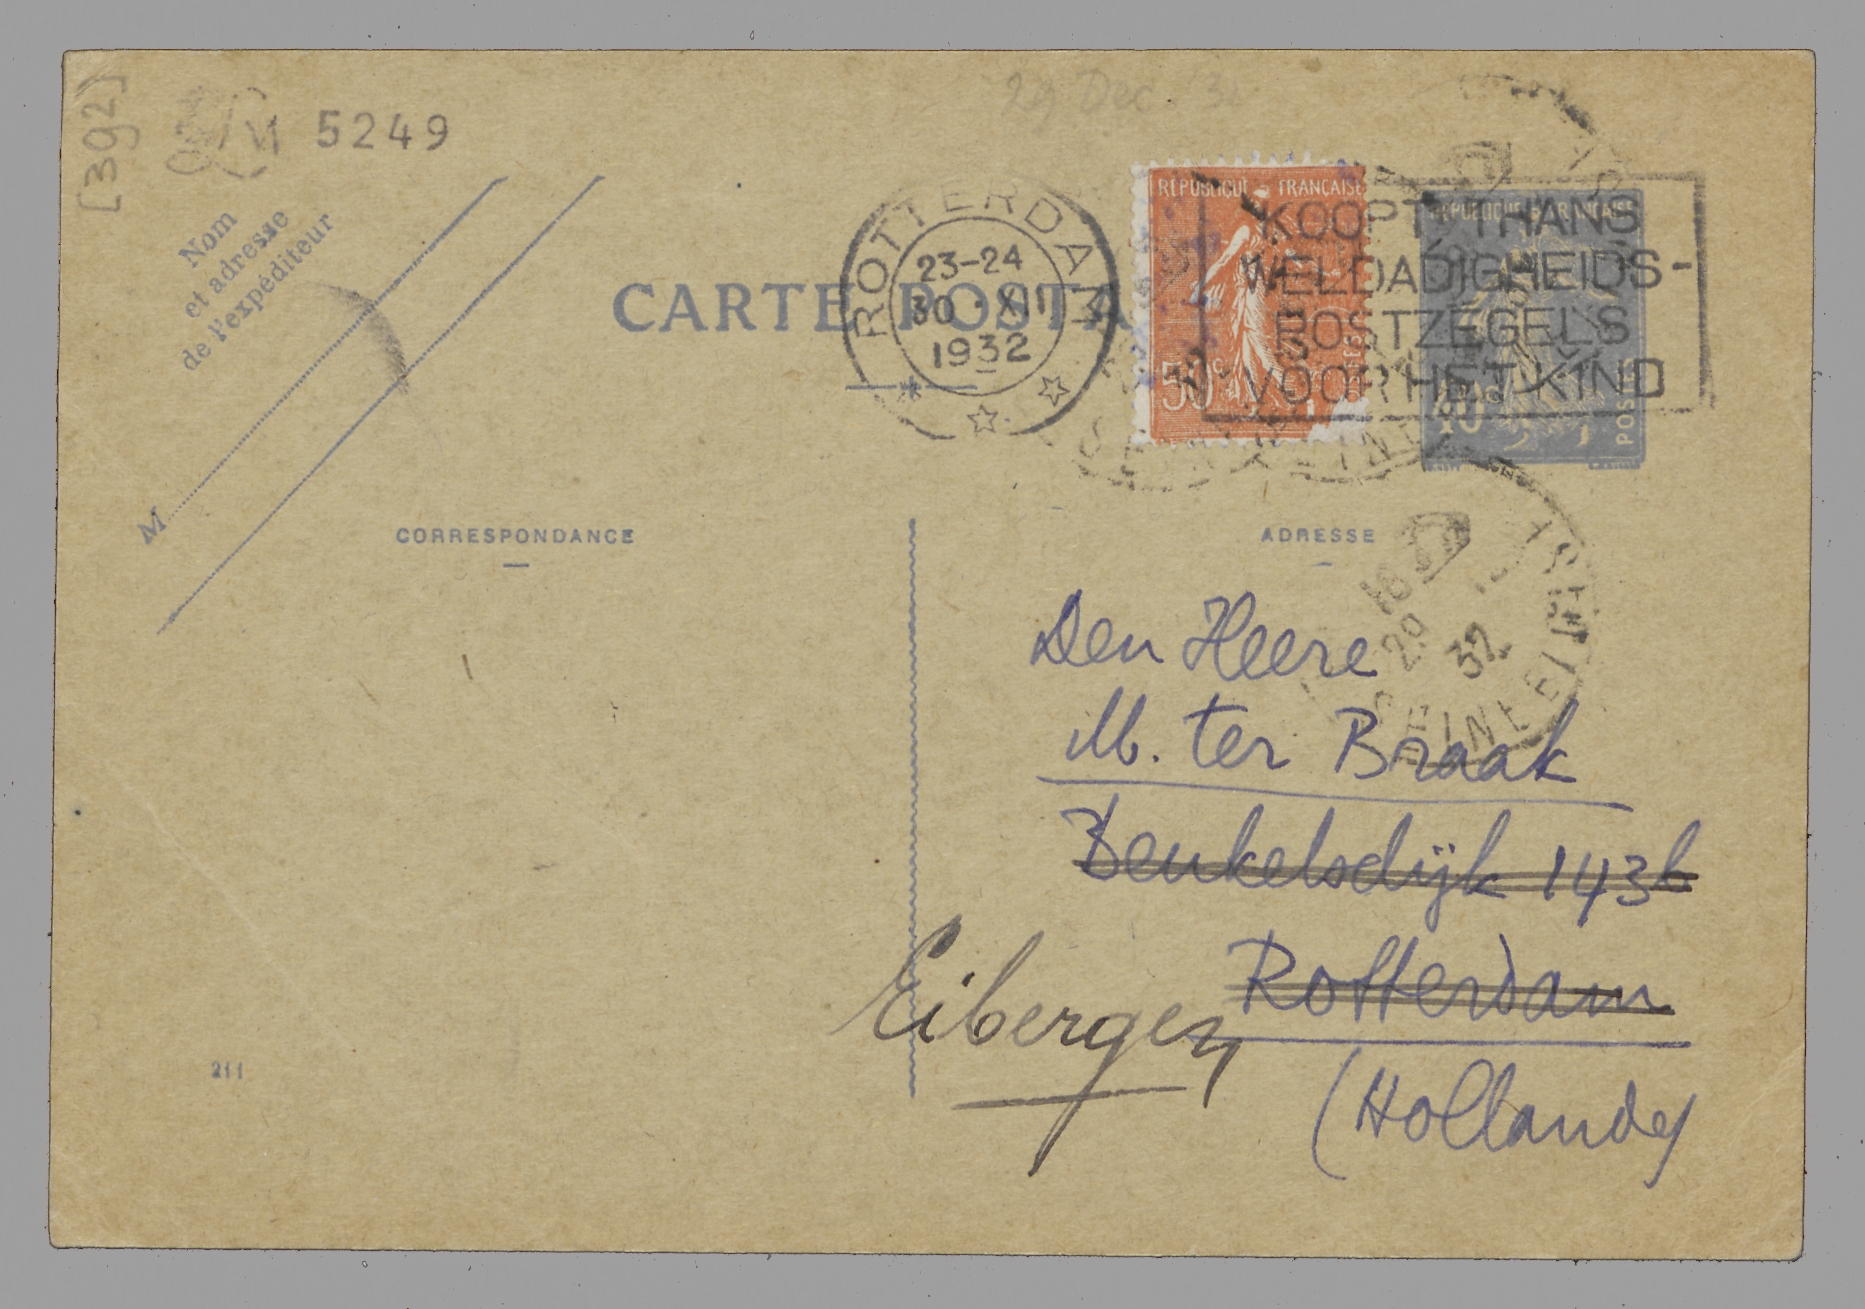 [392]
5249
29 Dec. '32
Nom
et adresse
de l'expéditeur
M
ROTTERDAM
23-24
30 · XII
1932
CARTE POSTA
RÉPUBLIQUE FRANÇAISE
50c
RÉPUBLIQUE FRANÇAISE
40c
POSTES
KOOPT THANS
WELDADIGHEIDS-
POSTZEGELS
VOOR HET KIND
CORRESPONDANCE
ADRESSE
18
29
32
SEINE
Den Heere
M. ter Braak
Beukelsdijk 143b
Rotterdam
Eibergen
(Hollande)
211